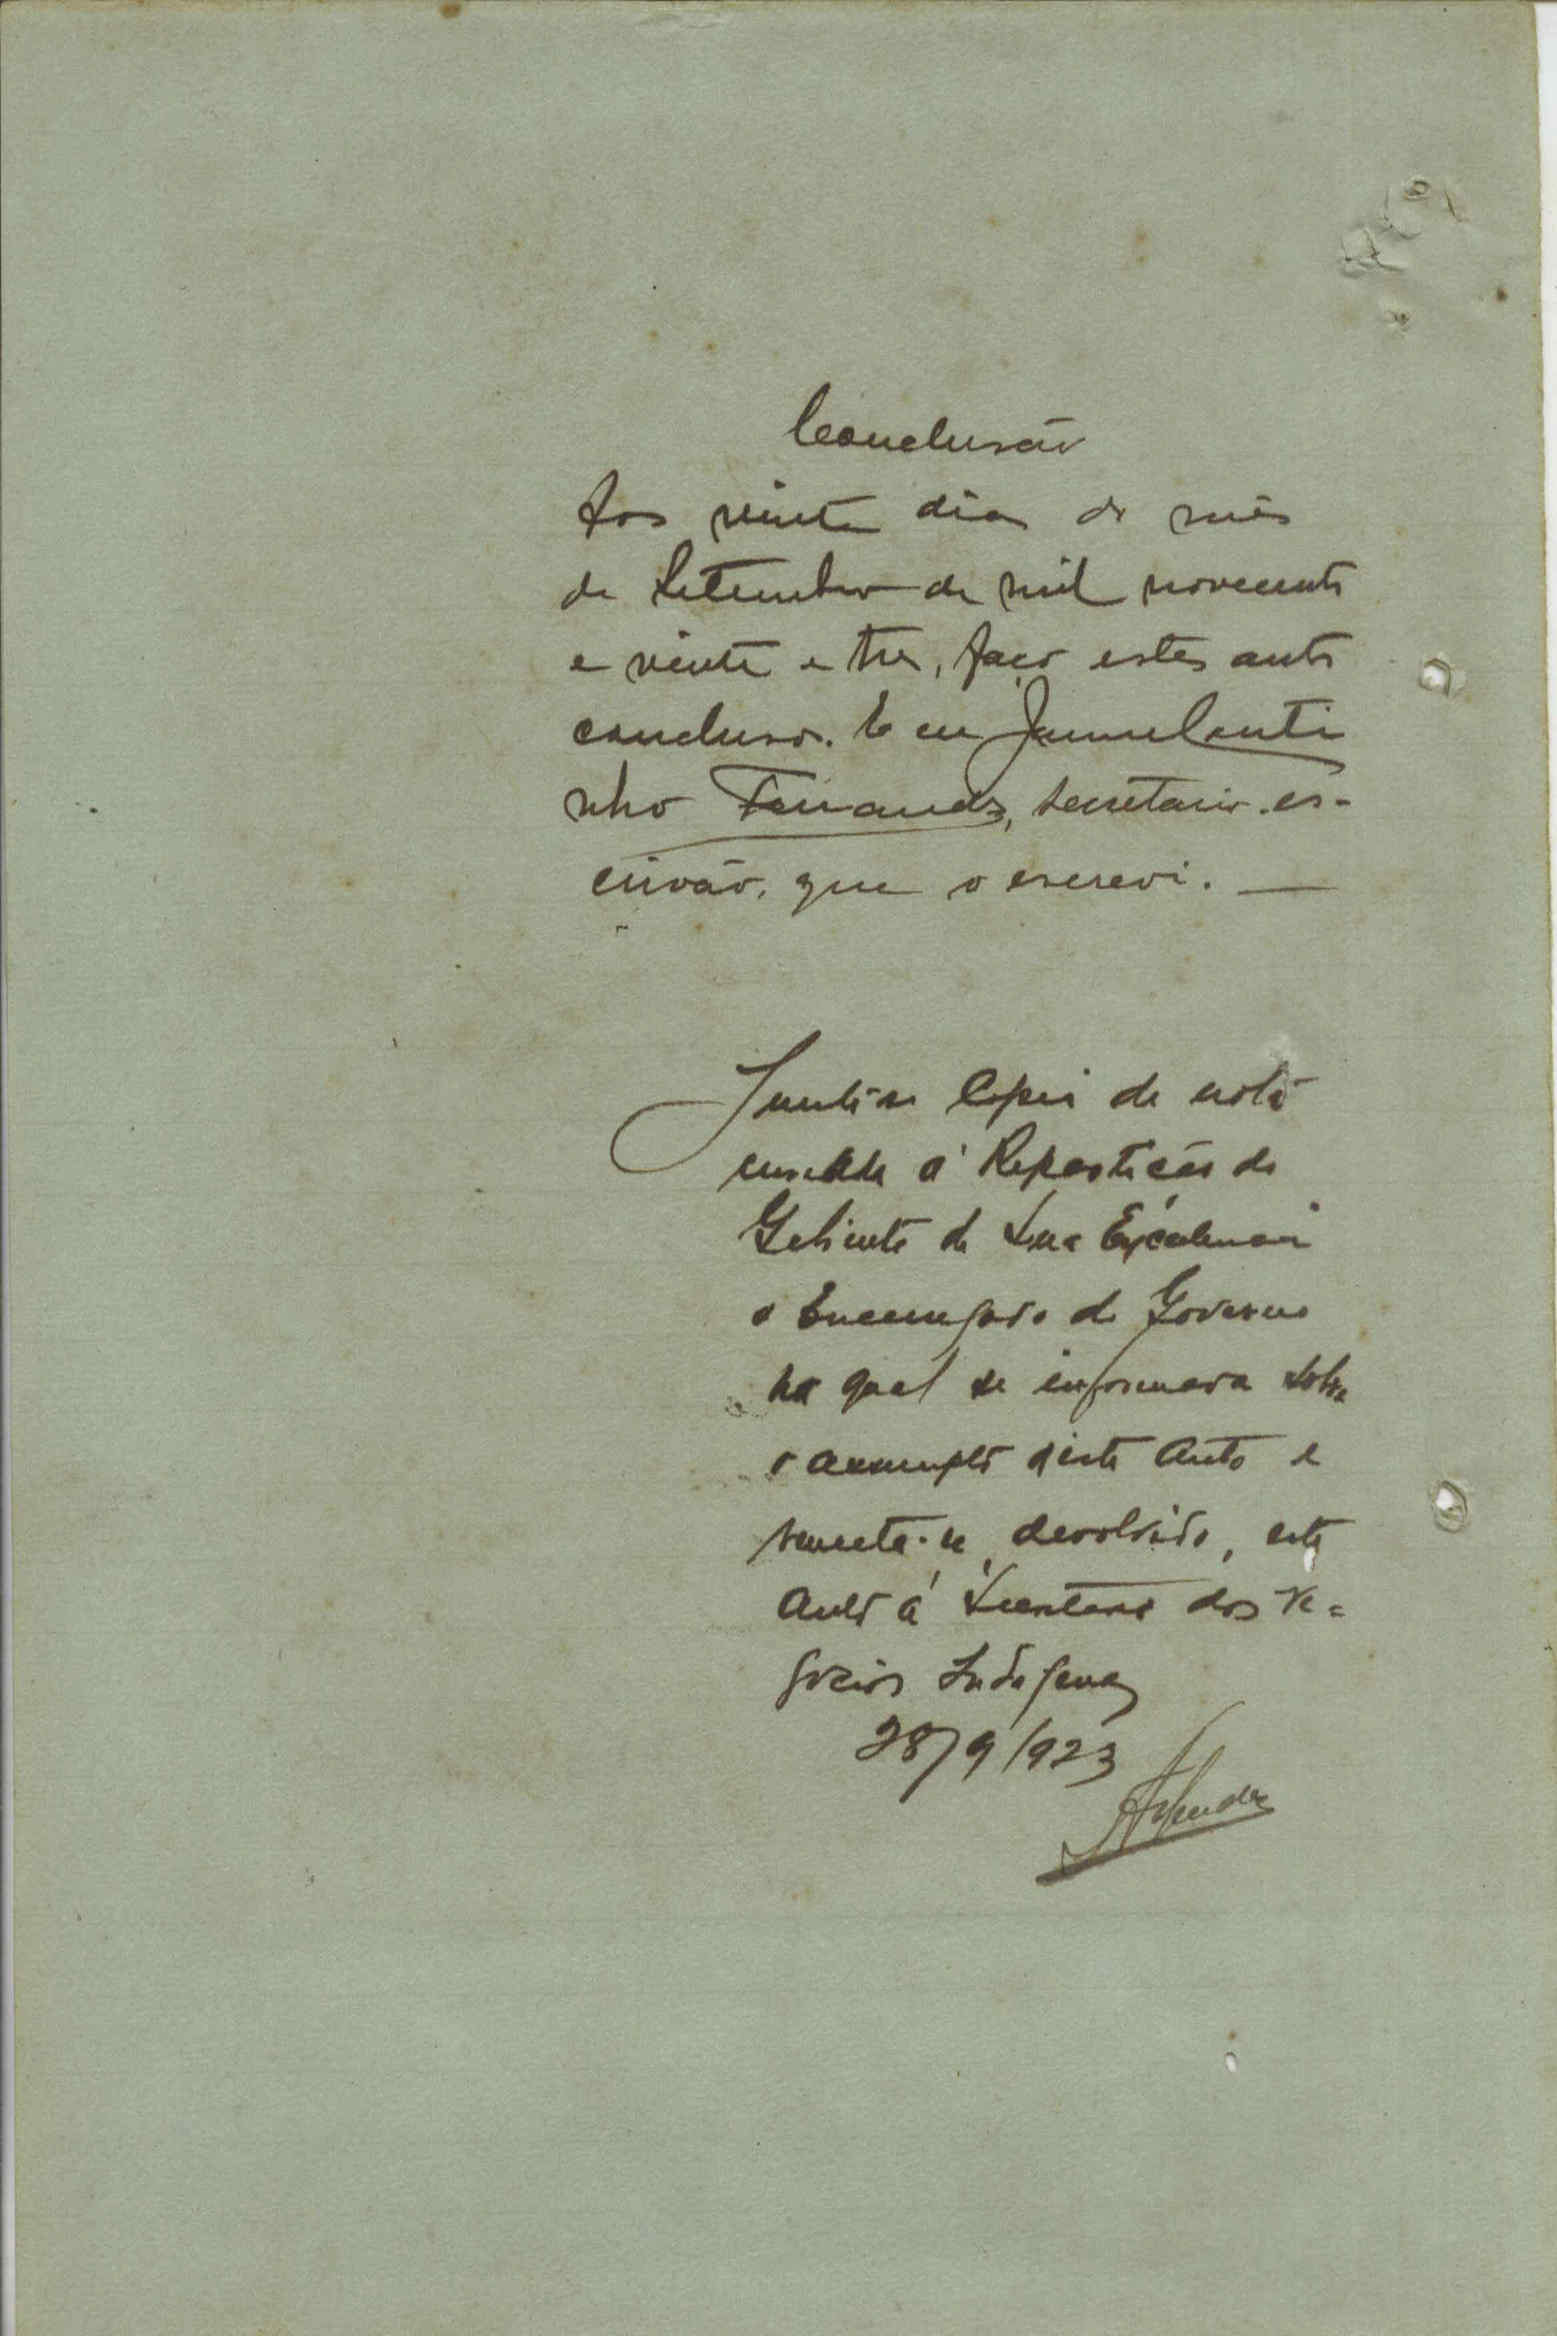 Conclusão
Aos vinte dias do mês
de Setembro de mil novecentos
e vinte e tres, faço estes autos
conclusos. E eu
nho Fernandes, secretario. es-
crivão, que o escrevi. —
Junte-se Copia da nota
enviada á Repartição do
Gabinete de Sua Excelencia
o Encarregado do Governo
na qual se informava sobre
o assumpto deste Auto e
remeta-se, devolvido, este
Auto á Secretaria dos Ne=
gocios Indigenas
28/9/923